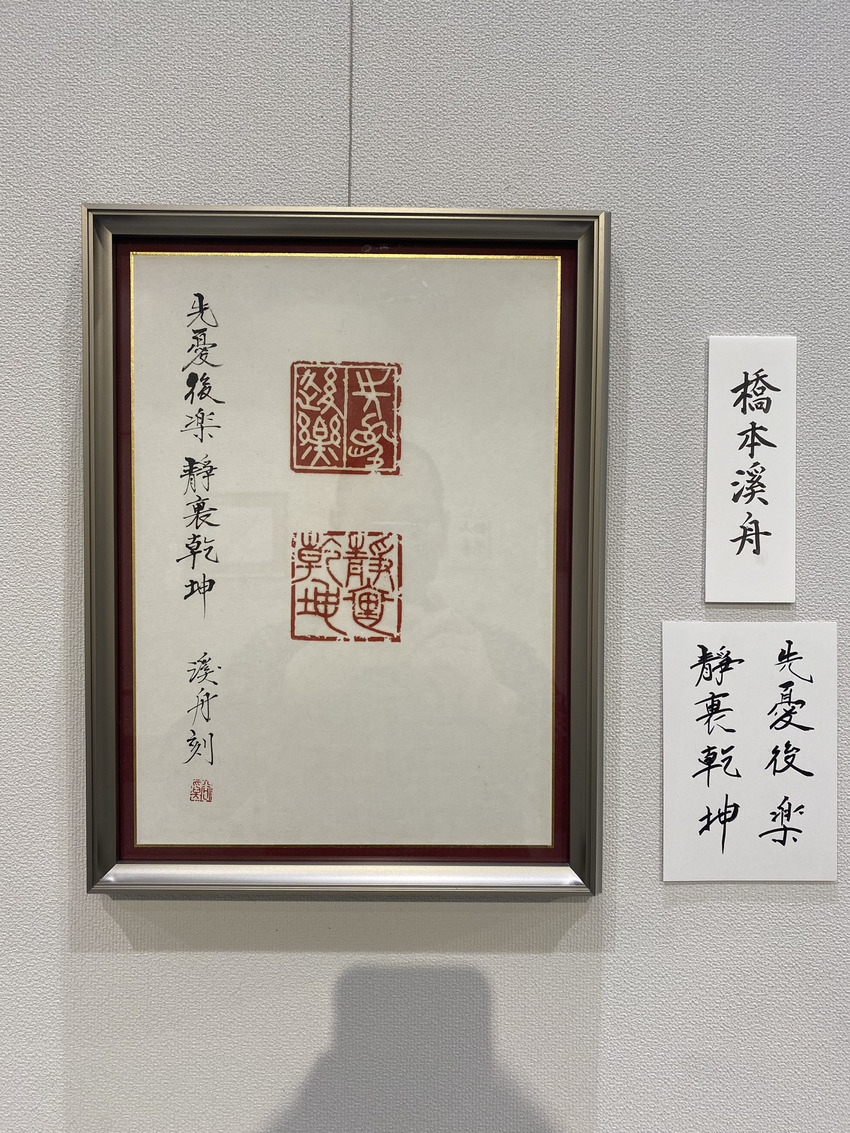 先憂後楽 靜裏乾坤 溪舟刻
先憂後樂
靜裏乾坤
橋本溪舟
先憂後楽
靜裏乾坤